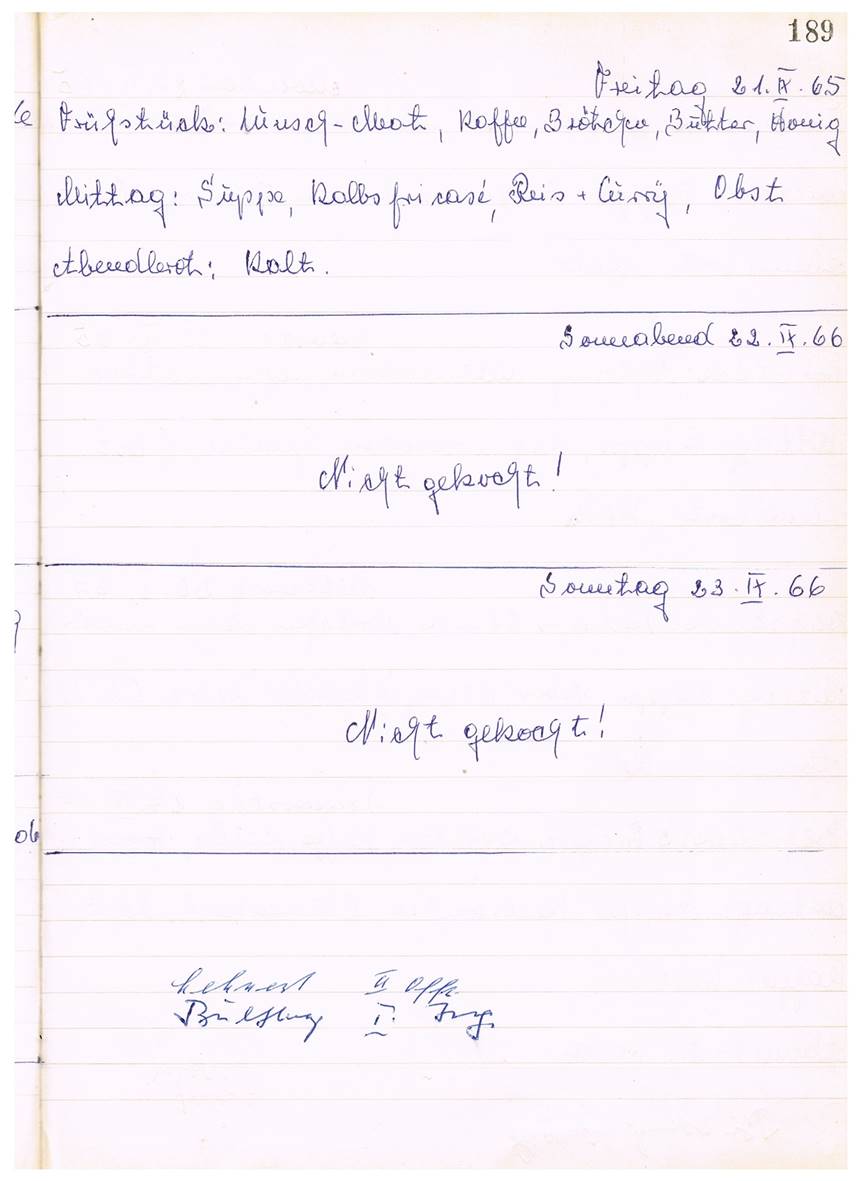 189
Freitag 21.IX.65
Frühstück: Wunsch-Mat, Kaffee, Brötchen, Butter, Honig
Mittag: Suppe, Kalbsfricasé, Reis + Curry, Obst
Abendbrot: Kalt.
Sonnabend 22.IX.66
Nicht gekocht!
Sonntag 23.IX.66
Nicht gekocht!
II Offz.
I. Ing.